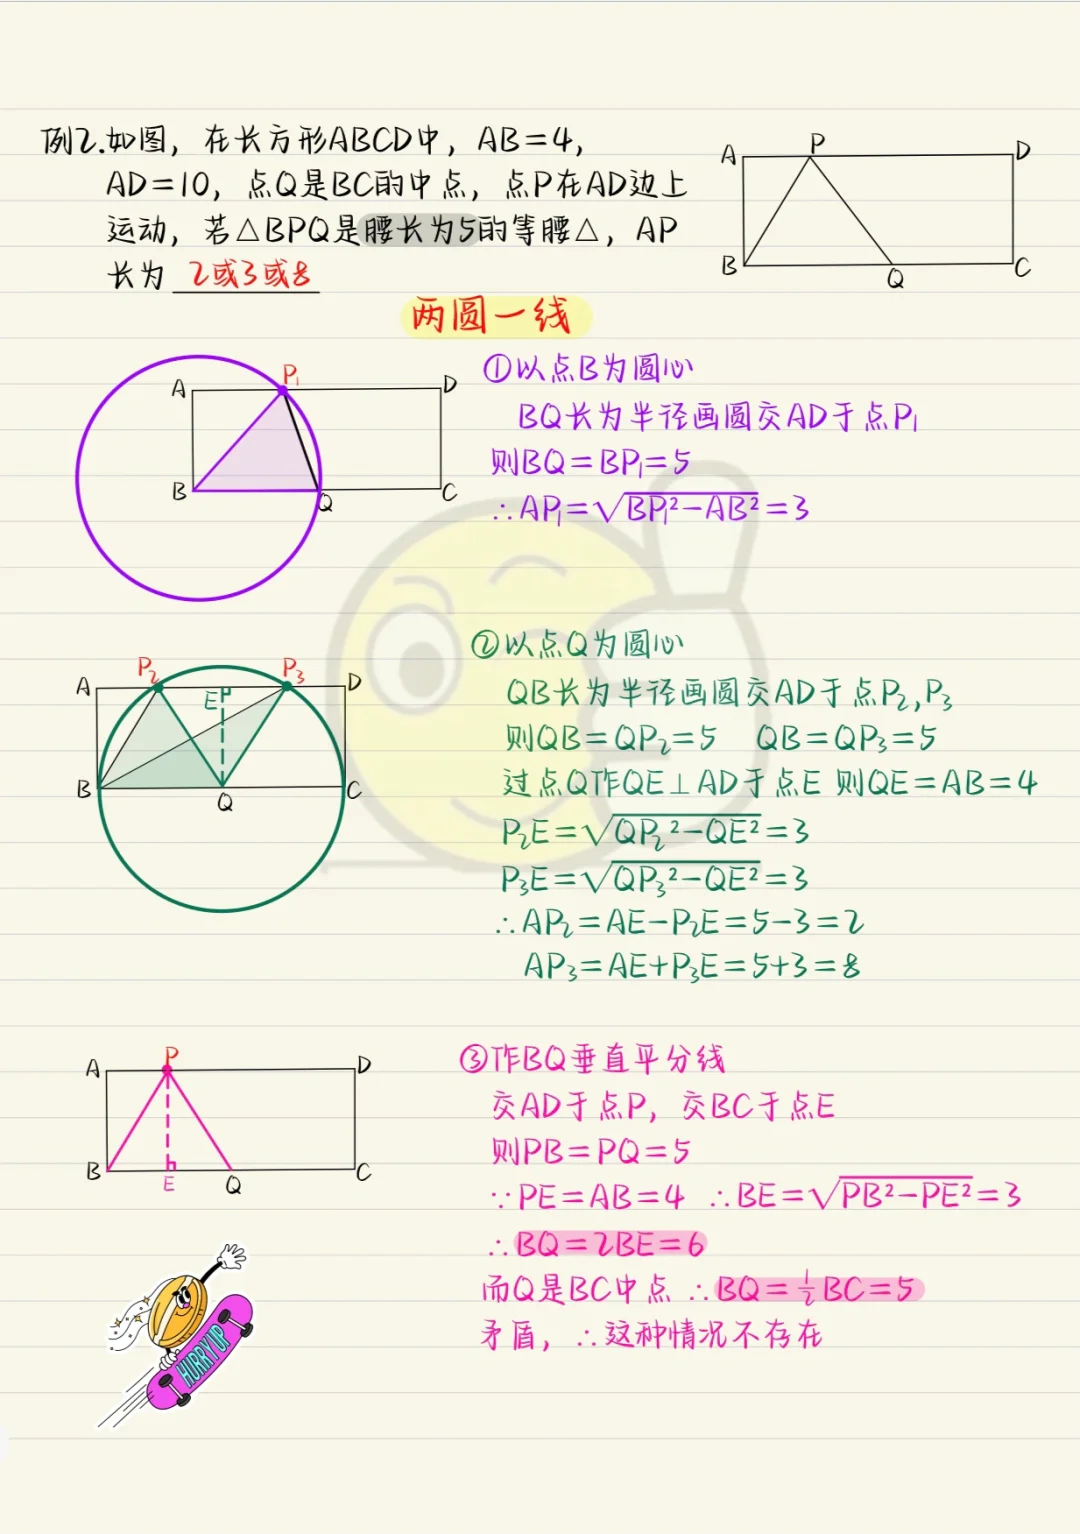 例2.如图，在长方形ABCD中，AB=4，
AD=10，点Q是BC的中点，点P在AD边上
运动，若△BPQ是腰长为5的等腰△，AP
长为 2或3或8
A P D
B Q C
两圆一线
①以点B为圆心
BQ长为半径画圆交AD于点P₁
则BQ=BP₁=5
∴AP₁=√BP₁²-AB²=3
A P₁ D
B Q C
②以点Q为圆心
QB长为半径画圆交AD于点P₂,P₃
则QB=QP₂=5 QB=QP₃=5
过点Q作QE⊥AD于点E 则QE=AB=4
P₂E=√QP₂²-QE²=3
P₃E=√QP₃²-QE²=3
∴AP₂=AE-P₂E=5-3=2
AP₃=AE+P₃E=5+3=8
A P₂ E P₃ D
B Q C
③作BQ垂直平分线
交AD于点P，交BC于点E
则PB=PQ=5
∵PE=AB=4 ∴BE=√PB²-PE²=3
∴BQ=2BE=6
而Q是BC中点 ∴BQ=½BC=5
矛盾，∴这种情况不存在
A P D
B E Q C
HURRY UP